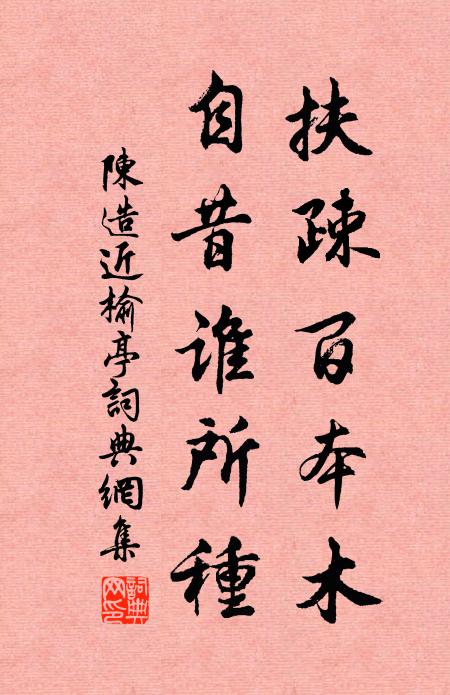 扶疎百本木
自昔誰所種
陳造近榆亭詞典網集
詞典網印